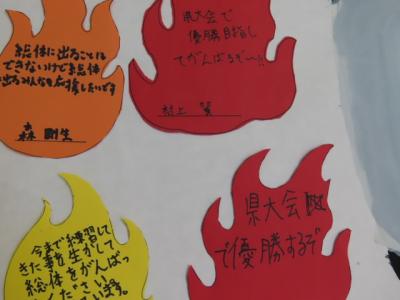 総体に出ることは
できないけどま総体
に出るみんなを応援したいです
森 剛生
県大会で
優勝目指し
てがんばるぞ〜!!
村上 賢
今まで練習して
きた事を生かして
総体をがんばっ
てください
県大会
で優勝するぞ